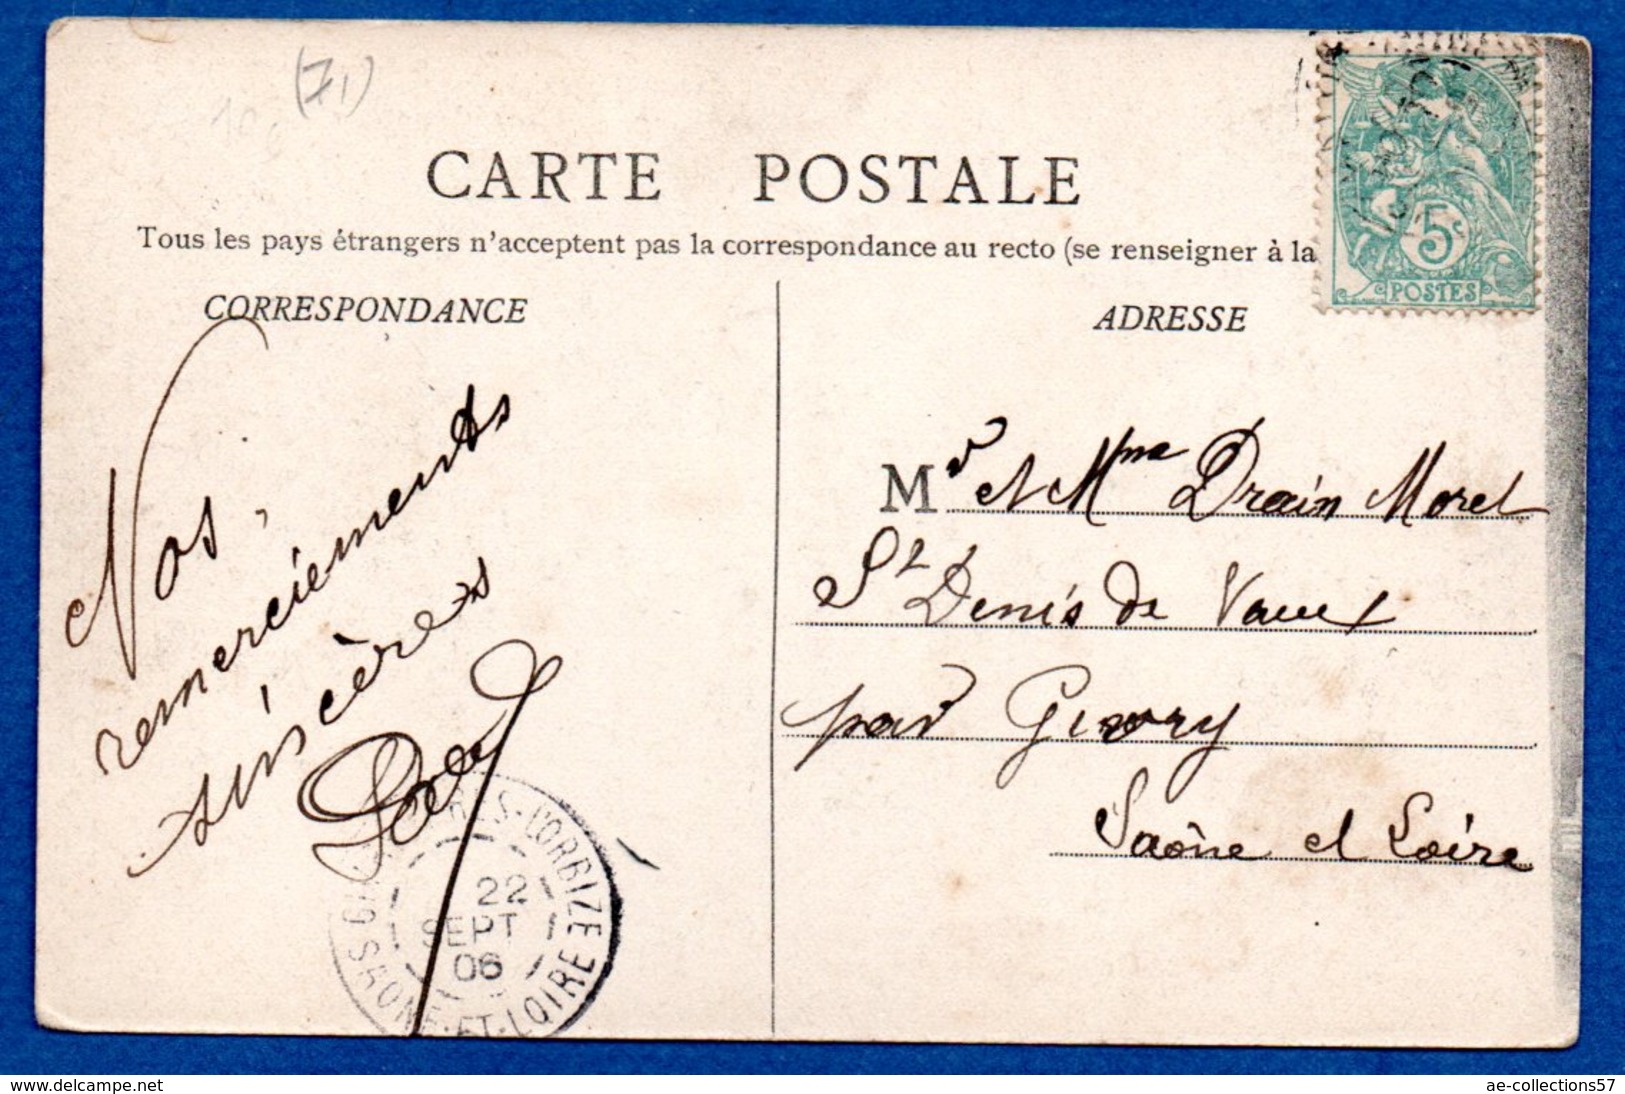 (71)
CARTE POSTALE
Tous les pays étrangers n'acceptent pas la correspondance au recto (se renseigner à la
5c
POSTES
CORRESPONDANCE
ADRESSE
Nos
remerciements
sincères
Mr et Mme Drain Morel
St Denis de Vaux
par Givry
Saône et Loire
GIVRY-PRÈS-L'ORBIZE
22
SEPT
06
SAONE-ET-LOIRE
www.delcampe.net
ae-collections57